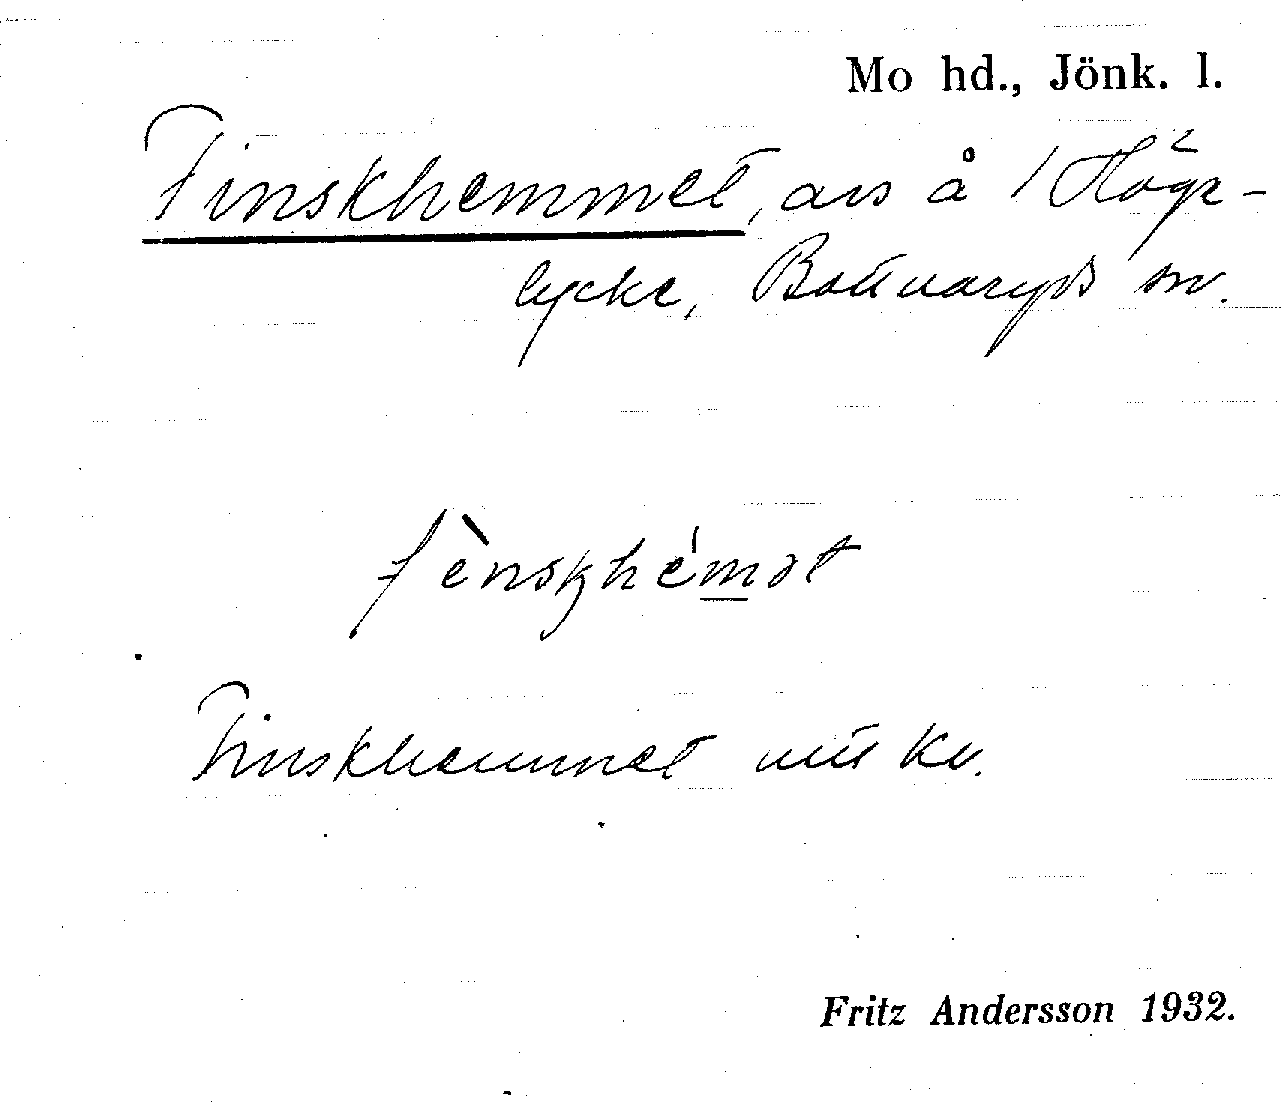 Mo hd., Jönk. l.
Finskhemmet, avs å 1 Höge-
lycke, Bottnaryds sn.
fènskhémət
Finskhemmet utt Kv.
Fritz Andersson 1932.